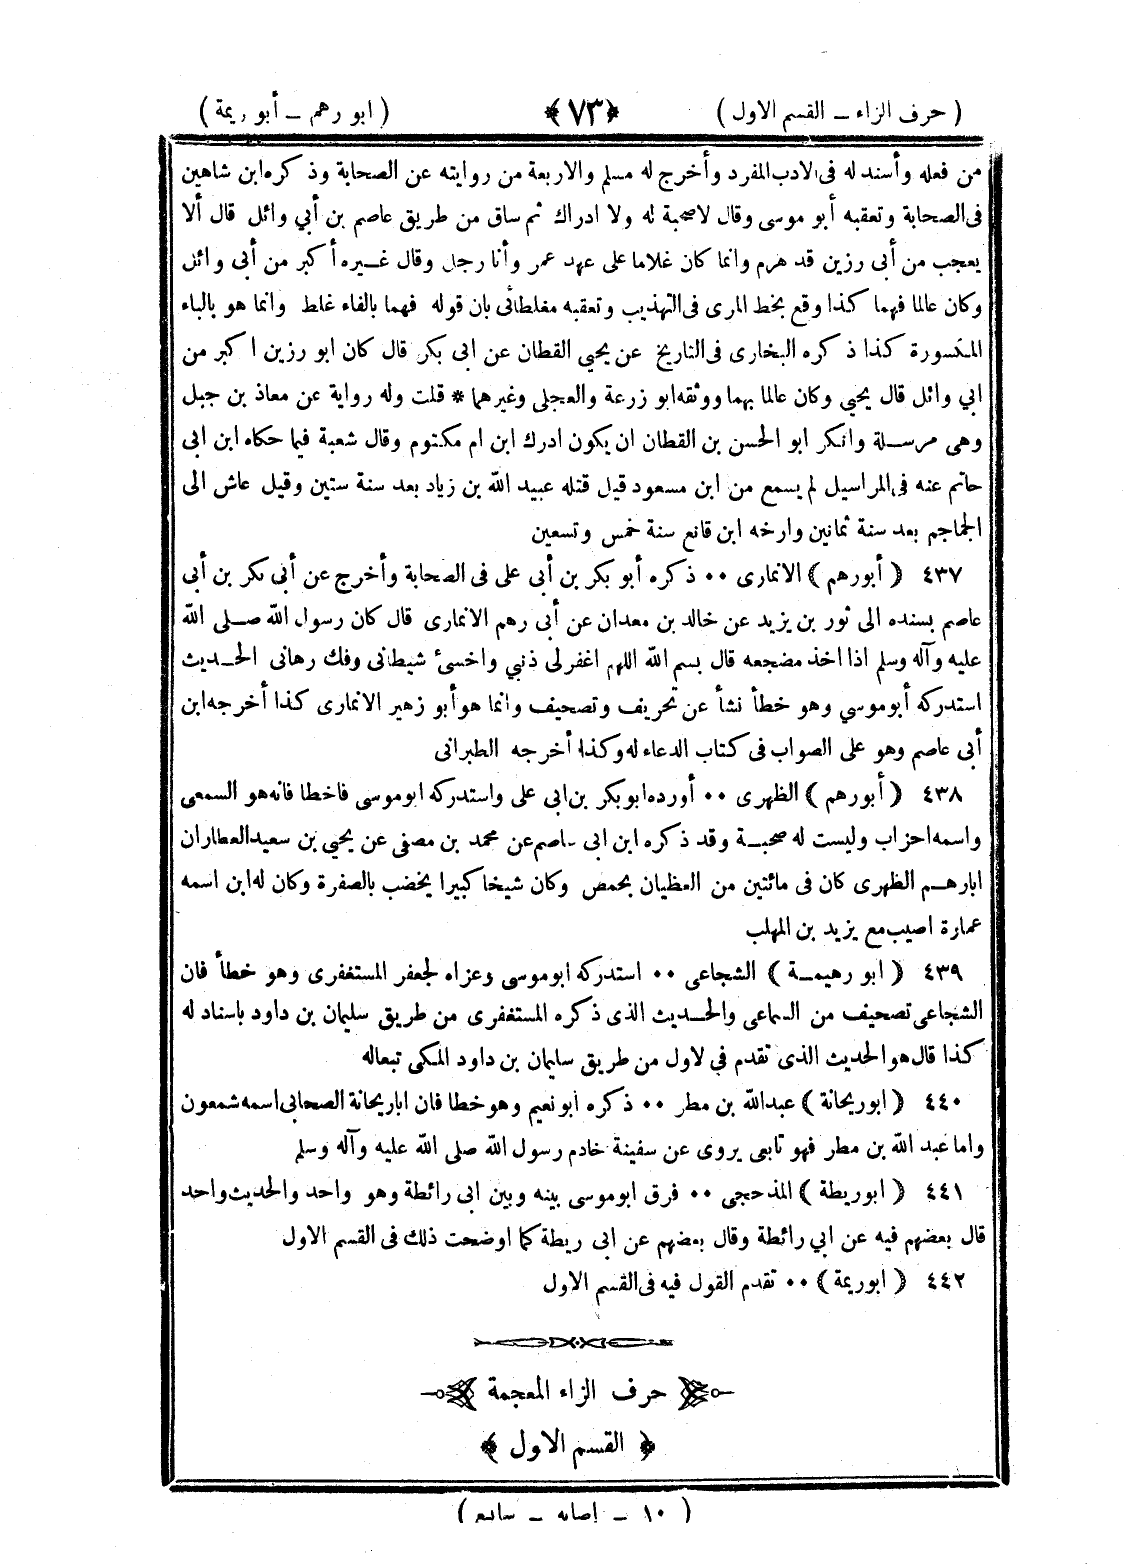 ( حرف الزاء ــ القسم الاول ) ﴿٧٣﴾ ( ابو رهم ــ أبو ريمة )
من فعله وأسند له فى الادب المفرد وأخرج له مسلم والاربعة من روايته عن الصحابة وذكره ابن شاهين
فى الصحابة وتعقبه أبو موسى وقال لا صحبة له ولا ادراك ثم ساق من طريق عاصم بن أبي وائل قال ألا
يعجب من أبى رزين قد هرم وانما كان غلاما على عهد عمر وأنا رجل وقال غيره أكبر من أبى وائل
وكان عالما فهما كذا وقع بخط المزى فى التهذيب وتعقبه مغلطائى بان قوله فهما بالفاء غلط وانما هو بالباء
المكسورة كذا ذكره البخارى فى التاريخ عن يحيي القطان عن ابى بكر قال كان ابو رزين اكبر من
ابي وائل قال يحيي وكان عالما بهما ووثقه ابو زرعة والعجلى وغيرهما * قلت وله رواية عن معاذ بن جبل
وهى مرسلة وانكر ابو الحسن بن القطان ان يكون ادرك ابن ام مكتوم وقال شعبة فيما حكاه ابن ابى
حاتم عنه فى المراسيل لم يسمع من ابن مسعود قيل قتله عبيد الله بن زياد بعد سنة ستين وقيل عاش الى
الجماجم بعد سنة ثمانين وارخه ابن قانع سنة خمس وتسعين
٤٣٧ ﴿ أبورهم ﴾ الانمارى ٠٠ ذكره أبو بكر بن أبى على فى الصحابة وأخرج عن أبى بكر بن أبى
عاصم بسنده الى ثور بن يزيد عن خالد بن معدان عن أبى رهم الانمارى قال كان رسول الله صلى الله
عليه وآله وسلم اذا اخذ مضجعه قال بسم الله اللهم اغفر لى ذنبي واخسئ شيطانى وفك رهانى الحديث
استدركه أبوموسي وهو خطأ نشأ عن تحريف وتصحيف وانما هو أبو زهير الانمارى كذا أخرجه ابن
أبى عاصم وهو على الصواب فى كتاب الدعاء له وكذا أخرجه الطبرانى
٤٣٨ ﴿ أبورهم ﴾ الظهرى ٠٠ أورده ابو بكر بن ابى على واستدركه ابوموسى فاخطا فانه هو السمعى
واسمه احزاب وليست له صحبة وقد ذكره ابن ابى عاصم عن محمد بن مصفى عن يحيي بن سعيد العطار ان
ابا رهم الظهرى كان فى مائتين من العظيان بحمص وكان شيخا كبيرا يخضب بالصفرة وكان له ابن اسمه
عمارة اصيب مع يزيد بن المهلب
٤٣٩ ﴿ ابو رهيمة ﴾ الشجاعى ٠٠ استدركه ابوموسى وعزاه لجعفر المستغفرى وهو خطأ فان
الشجاعى تصحيف من السماعى والحديث الذى ذكره المستغفرى من طريق سليمان بن داود باسناد له
كذا قال هو الحديث الذى تقدم في لاول من طريق سليمان بن داود المكى تبعاله
٤٤٠ ﴿ ابوريحانة ﴾ عبدالله بن مطر ٠٠ ذكره ابونعيم وهو خطا فان اباريحانة الصحابى اسمه شمعون
واما عبد الله بن مطر فهو تابعى يروى عن سفينة خادم رسول الله صلى الله عليه وآله وسلم
٤٤١ ﴿ ابوريطة ﴾ المذحجى ٠٠ فرق ابوموسى بينه وبين ابى رائطة وهو واحد والحديث واحد
قال بعضهم فيه عن ابي رائطة وقال بعضهم عن ابى ريطة كما اوضحت ذلك فى القسم الاول
٤٤٢ ﴿ ابوريمة ﴾ ٠٠ تقدم القول فيه فى القسم الاول
حرف الزاء المعجمة
﴿ القسم الاول ﴾
( ١٠ ــ إصابه ــ سابع )